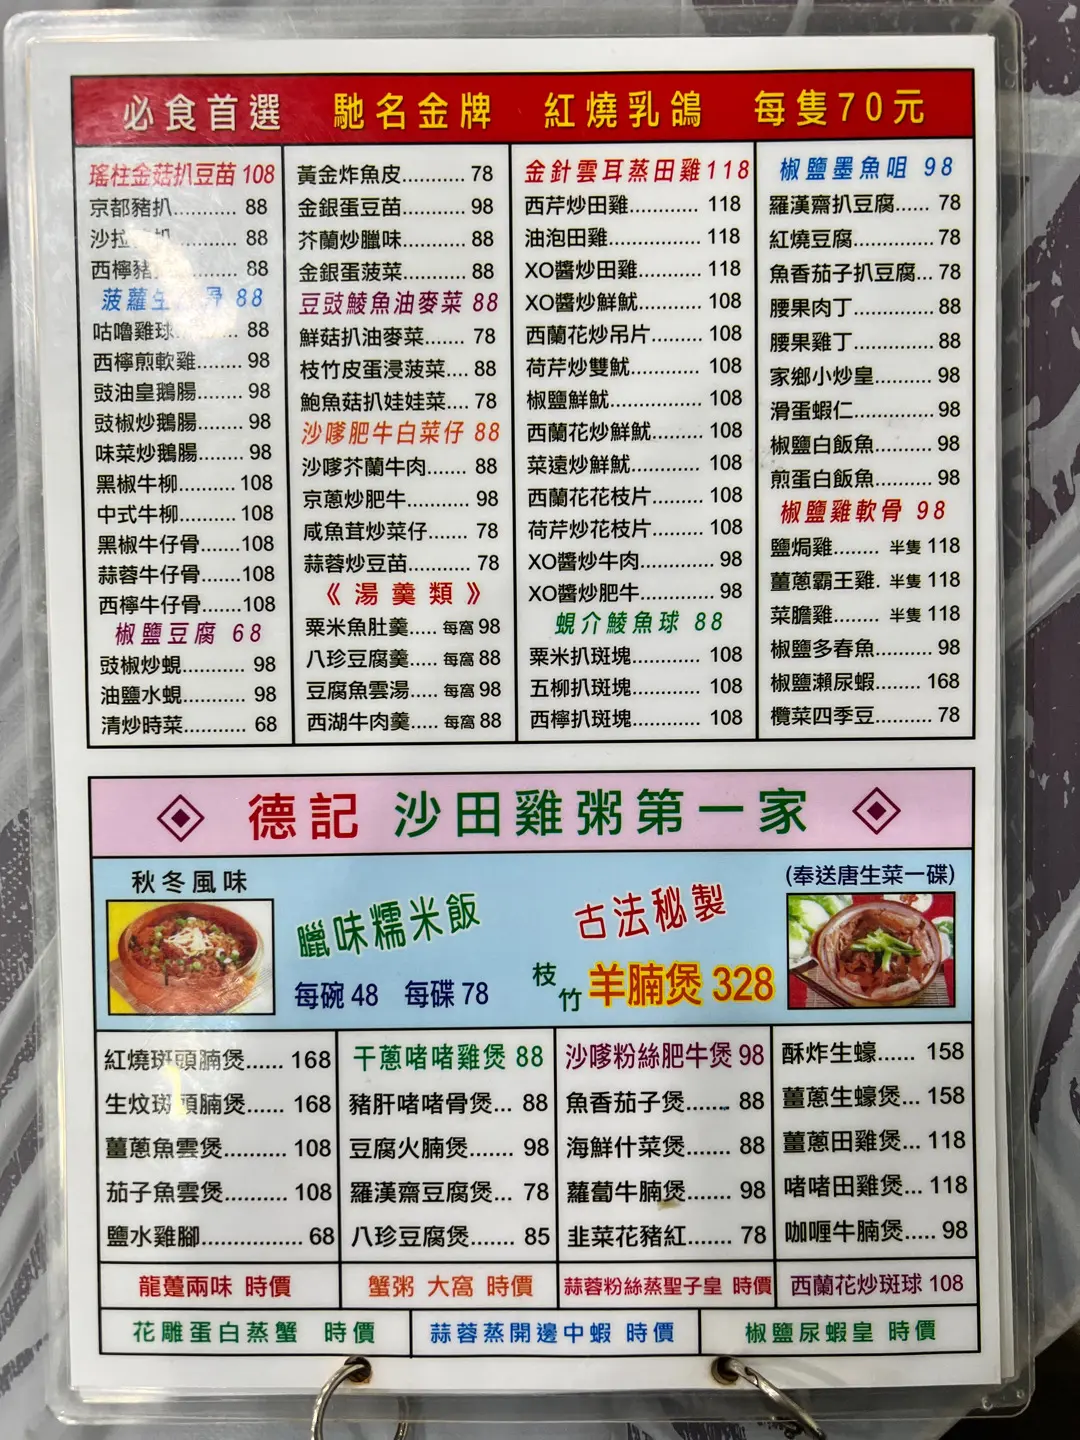 必食首選 馳名金牌 紅燒乳鴿 每隻70元
瑤柱金菇扒豆苗 108
京都豬扒.......... 88
沙拉 扒.......... 88
西檸豬 88
菠蘿生 骨 88
咕嚕雞球.......... 88
西檸煎軟雞........ 98
豉油皇鵝腸........ 98
豉椒炒鵝腸........ 98
味菜炒鵝腸........ 98
黑椒牛柳.......... 108
中式牛柳.......... 108
黑椒牛仔骨.......108
蒜蓉牛仔骨.......108
西檸牛仔骨.......108
椒鹽豆腐 68
豉椒炒蜆........... 98
油鹽水蜆........... 98
清炒時菜........... 68
黃金炸魚皮........... 78
金銀蛋豆苗........... 98
芥蘭炒臘味........... 88
金銀蛋菠菜........... 88
豆豉鯪魚油麥菜 88
鮮菇扒油麥菜....... 78
枝竹皮蛋浸菠菜.... 88
鮑魚菇扒娃娃菜.... 78
沙嗲肥牛白菜仔 88
沙嗲芥蘭牛肉....... 88
京蔥炒肥牛............ 98
咸魚茸炒菜仔....... 78
蒜蓉炒豆苗............ 78
《湯羹類》
粟米魚肚羹..... 每窩 98
八珍豆腐羹..... 每窩 88
豆腐魚雲湯..... 每窩 98
西湖牛肉羹..... 每窩 88
金針雲耳蒸田雞118
西芹炒田雞............ 118
油泡田雞............... 118
XO醬炒田雞........... 118
XO醬炒鮮魷........... 108
西蘭花炒吊片......... 108
荷芹炒雙魷............ 108
椒鹽鮮魷............... 108
西蘭花炒鮮魷......... 108
菜遠炒鮮魷............ 108
西蘭花花枝片......... 108
荷芹炒花枝片......... 108
XO醬炒牛肉............. 98
XO醬炒肥牛............. 98
蜆介鯪魚球 88
粟米扒斑塊............ 108
五柳扒斑塊............ 108
西檸扒斑塊............ 108
椒鹽墨魚咀 98
羅漢齋扒豆腐...... 78
紅燒豆腐.............. 78
魚香茄子扒豆腐... 78
腰果肉丁.............. 88
腰果雞丁.............. 88
家鄉小炒皇.......... 98
滑蛋蝦仁.............. 98
椒鹽白飯魚.......... 98
煎蛋白飯魚.......... 98
椒鹽雞軟骨 98
鹽焗雞........ 半隻 118
薑蔥霸王雞. 半隻 118
菜膽雞........ 半隻 118
椒鹽多春魚.......... 98
椒鹽瀨尿蝦........ 168
欖菜四季豆.......... 78
德記 沙田雞粥第一家
秋冬風味
臘味糯米飯
每碗 48 每碟 78
古法秘製
枝竹 羊腩煲 328
(奉送唐生菜一碟)
紅燒斑頭腩煲...... 168
生炆斑頭腩煲...... 168
薑蔥魚雲煲.......... 108
茄子魚雲煲.......... 108
鹽水雞腳................ 68
干蔥啫啫雞煲 88
豬肝啫啫骨煲... 88
豆腐火腩煲....... 98
羅漢齋豆腐煲... 78
八珍豆腐煲....... 85
沙嗲粉絲肥牛煲 98
魚香茄子煲....... 88
海鮮什菜煲....... 88
蘿蔔牛腩煲....... 98
韭菜花豬紅....... 78
酥炸生蠔...... 158
薑蔥生蠔煲... 158
薑蔥田雞煲... 118
啫啫田雞煲... 118
咖喱牛腩煲.... 98
龍躉兩味 時價
蟹粥 大窩 時價
蒜蓉粉絲蒸聖子皇 時價
西蘭花炒斑球 108
花雕蛋白蒸蟹 時價
蒜蓉蒸開邊中蝦 時價
椒鹽尿蝦皇 時價